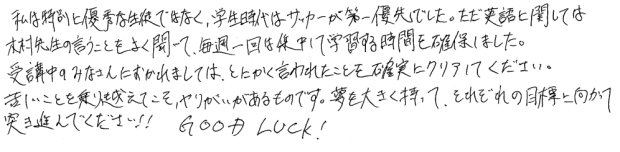 私は特別に優秀な生徒ではなく、学生時代はサッカーが第一優先でした。ただ英語に関しては
木村先生の言うことをよく聞いて、毎週一回は集中して学習する時間を確保しました。
受講中のみなさんにおかれましては、とにかく言われたことを確実にクリアしてください。
苦しいことを乗り越えてこそ、ヤリがいがあるものです。夢を大きく持って、それぞれの目標に向かって
突き進んでください!! GOOD LUCK!